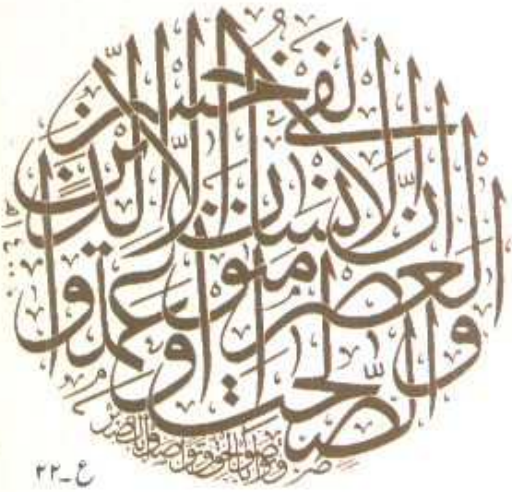 والعصر
ان الانسان لفى خسر
الا الذين آمنوا وعملوا الصلحت
وتواصوا بالحق وتواصوا بالصبر
١٤٠٠ھ
ع-٢٢